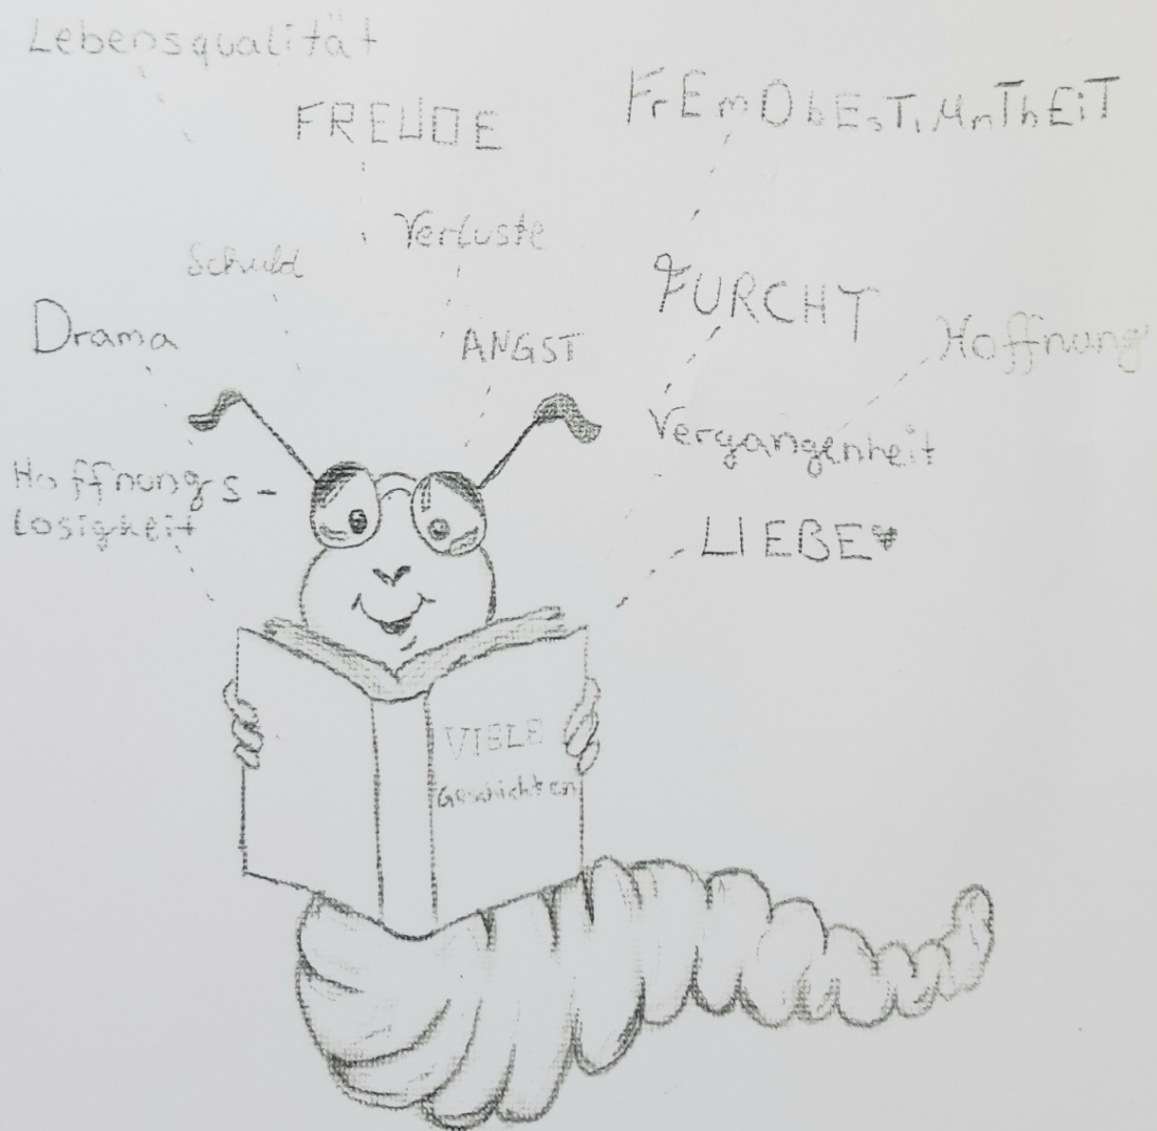 Lebensqualität
FREUDE
FrEmDbEsTiMmThEiT
Verluste
Schuld
FURCHT
Drama
ANGST
Hoffnung
Vergangenheit
Hoffnungs-
losigkeit
LIEBE♥
VIELE
Geschichten